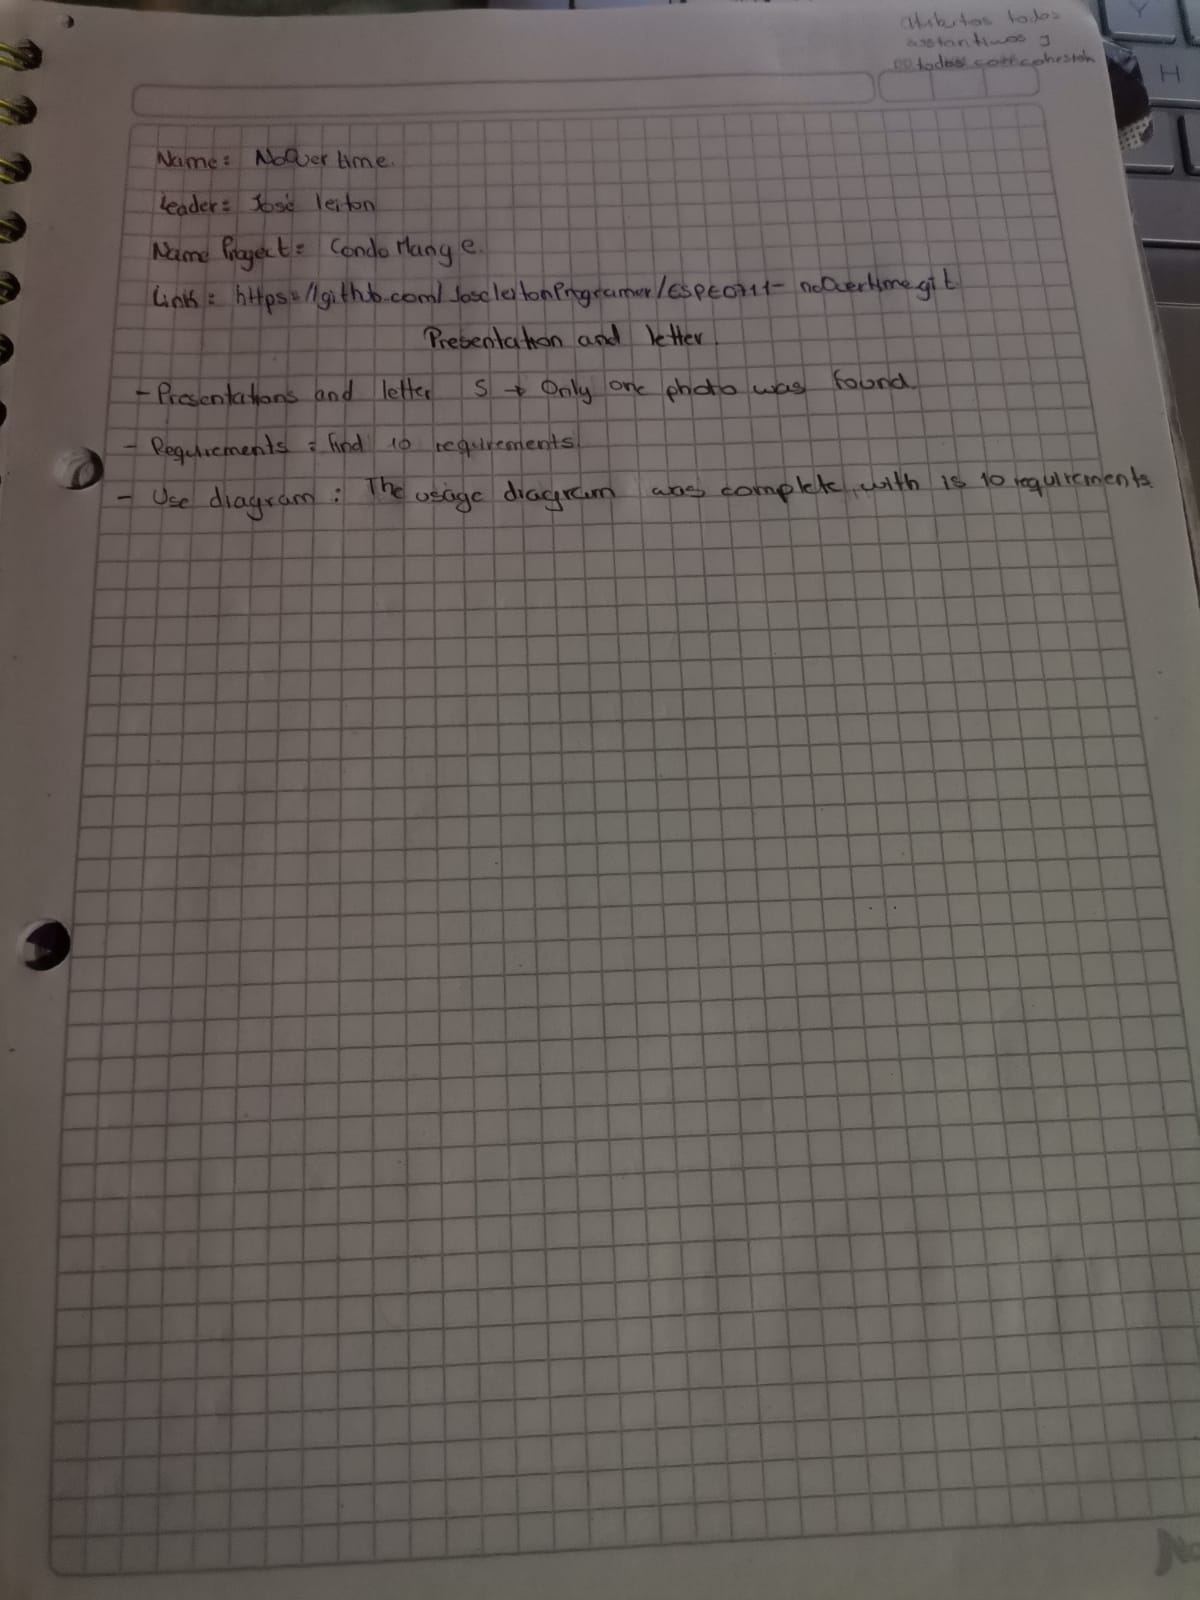 atributos todos
sustantivos y
todas con cohesion
Name: NoOvertime.
Leader: José leiton
Name Project: Condo Mange.
Link: https://github.com/JoseleitonProgramer/ESPE0711-noOvertime.git
Presentation and letter.
- Presentations and letter S → Only one photo was found.
- Requirements: find 10 requirements
- Use diagram: The usage diagram was complete, with is 10 requirements.